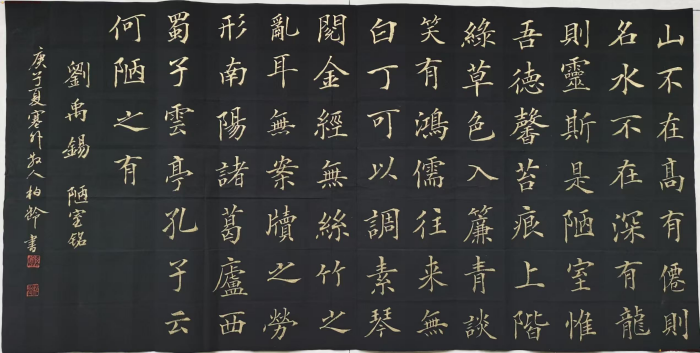 山不在高有僊則
名水不在深有龍
則靈斯是陋室惟
吾德馨苔痕上階
綠草色入簾青談
笑有鴻儒往來無
白丁可以調素琴
閱金經無絲竹之
亂耳無案牘之勞
形南陽諸葛廬西
蜀子雲亭孔子云
何陋之有
劉禹錫 陋室銘
庚子夏寒外牧人柏幹書